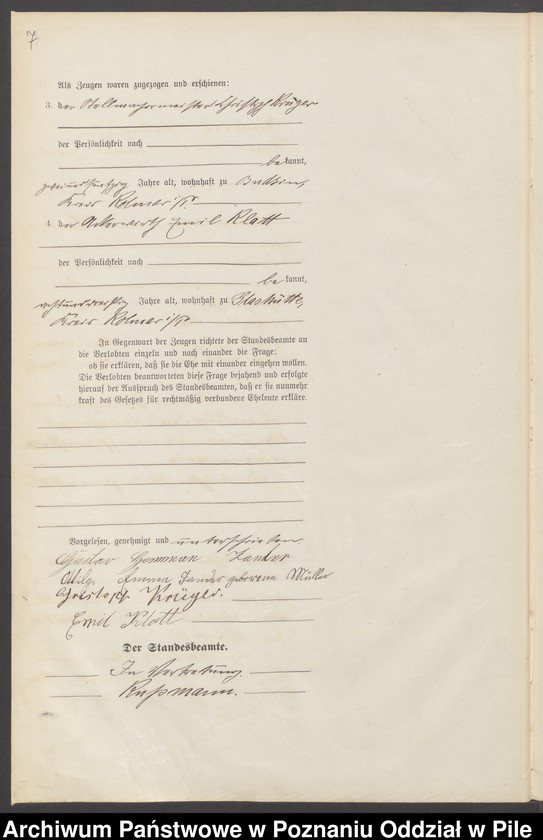 7
Als Zeugen waren zugezogen und erschienen:
3. der Stellmachermeister Christoph Krüger
der Persönlichkeit nach
bekannt,
zweiundfünfzig Jahre alt, wohnhaft zu Budsin,
Kreis Kolmar i/P.
4. der Ackerwirth Emil Klatt
der Persönlichkeit nach
bekannt,
achtunddreißig Jahre alt, wohnhaft zu Glashütte,
Kreis Kolmar i/P.
In Gegenwart der Zeugen richtete der Standesbeamte an
die Verlobten einzeln und nach einander die Frage:
ob sie erklären, daß sie die Ehe mit einander eingehen wollen.
Die Verlobten beantworteten diese Frage bejahend und erfolgte
hierauf der Ausspruch des Standesbeamten, daß er sie nunmehr
kraft des Gesetzes für rechtmäßig verbundene Eheleute erkläre.
Vorgelesen, genehmigt und unterschrieben.
Gustav Hermman Zander
Emma Zander geborene Müller
Christoph Krüger.
Emil Klatt
Der Standesbeamte.
In Vertretung.
Rußmann.
Archiwum Państwowe w Poznaniu Oddział w Pile